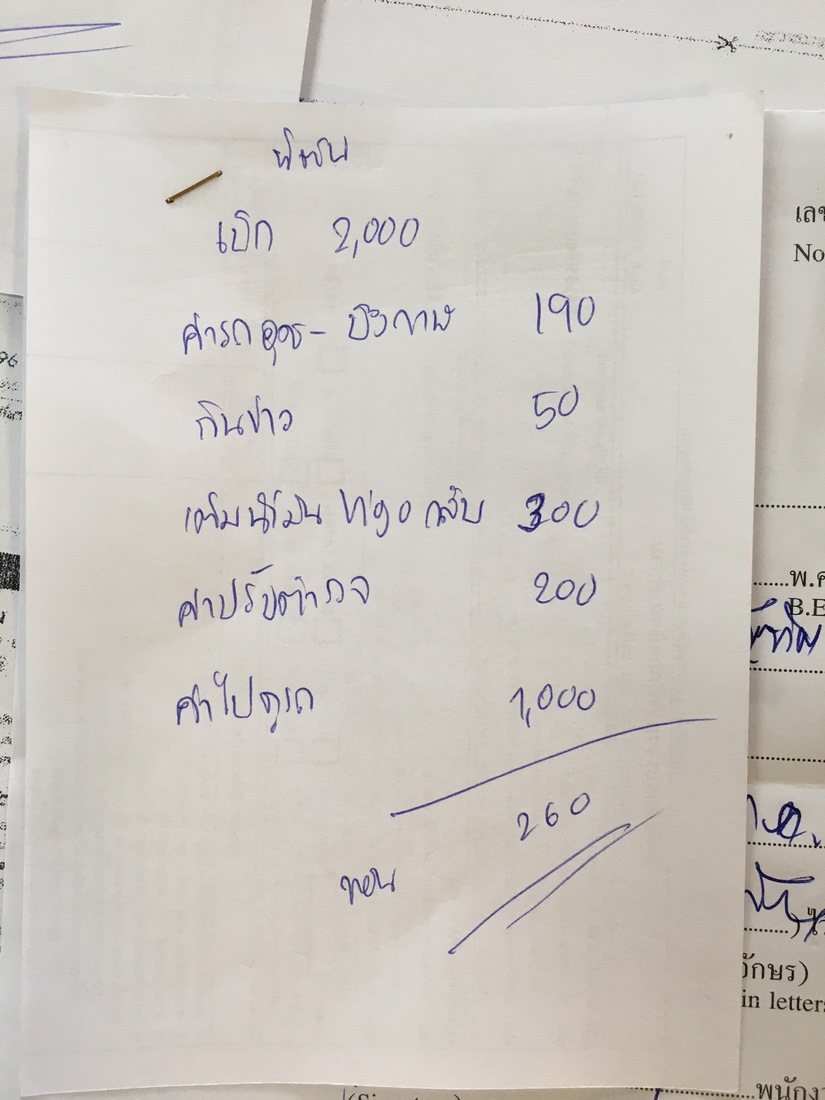 เบิก 2,000
ค่ารถอุดร - บึงกาฬ 190
กินข้าว 50
เติมน้ำมัน Vigo กลับ 300
ค่าปรับตำรวจ 200
ค่าไปดูรถ 1,000
260
ทอน
เลข
No
พ.ศ
B.E
อักษร)
in letters
พนักง